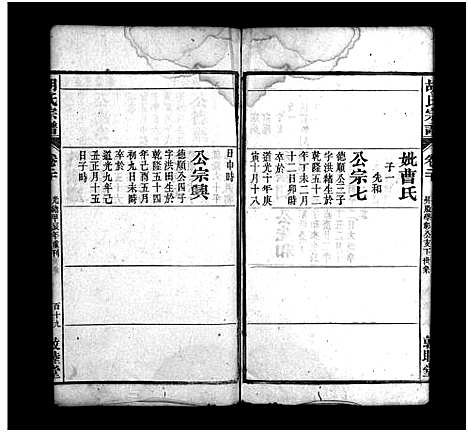 胡氏宗譜
卷二十
妣曹氏
子一
先和
公宗七
德順公二子
字洪緒生於
乾隆五十二
年丁二月初
十二日卯時
卒於
道光十年庚
寅十月十八
敦睦堂
日申時
公宗興
德順公四子
字洪田生於
乾隆五十四
年己酉五月
初九日未時
卒於
道光九年己
丑正月十五
日子時
胡氏宗譜
卷二十
百十九
敦睦堂